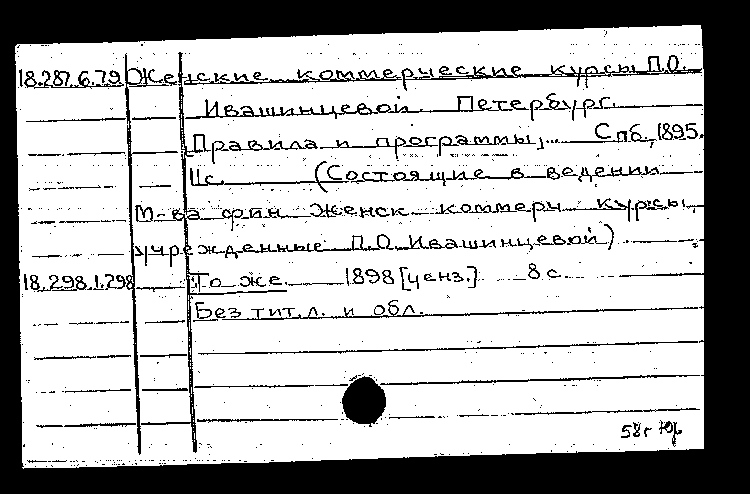 18.287.6.79 Женские коммерческие курсы П.О.
Ивашинцевой. Петербург.
Правила и программы, Спб., 1895.
11с. (Состоящие в ведении
М-ва фин. Женск. коммерч. курсы,
учрежденные П.О. Ивашинцевой)
18.298.1.298 То же. 1898 [ценз.] 8 с.
Без тит.л. и обл.
58г Юр